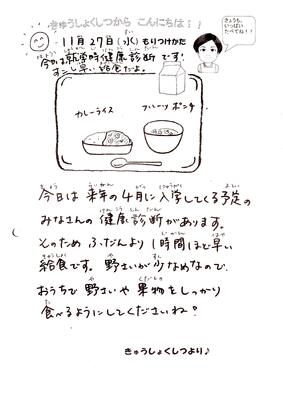 きゅうしょくしつから こんにちは!!
きょうも、
いっぱい
たべてね!!
11月27日(水)もりつけかた
今日は就学時健康診断です!
すこし早い給食だよ。
カレーライス
フルーツポンチ
今日は来年の4月に入学してくる予定の
みなさんの健康診断があります。
そのため ふだんより1時間ほど早い
給食です。野さいが少なめなので、
おうちで野さいや果物をしっかり
食べるようにしてくださいね?
きゅうしょくしつより♪